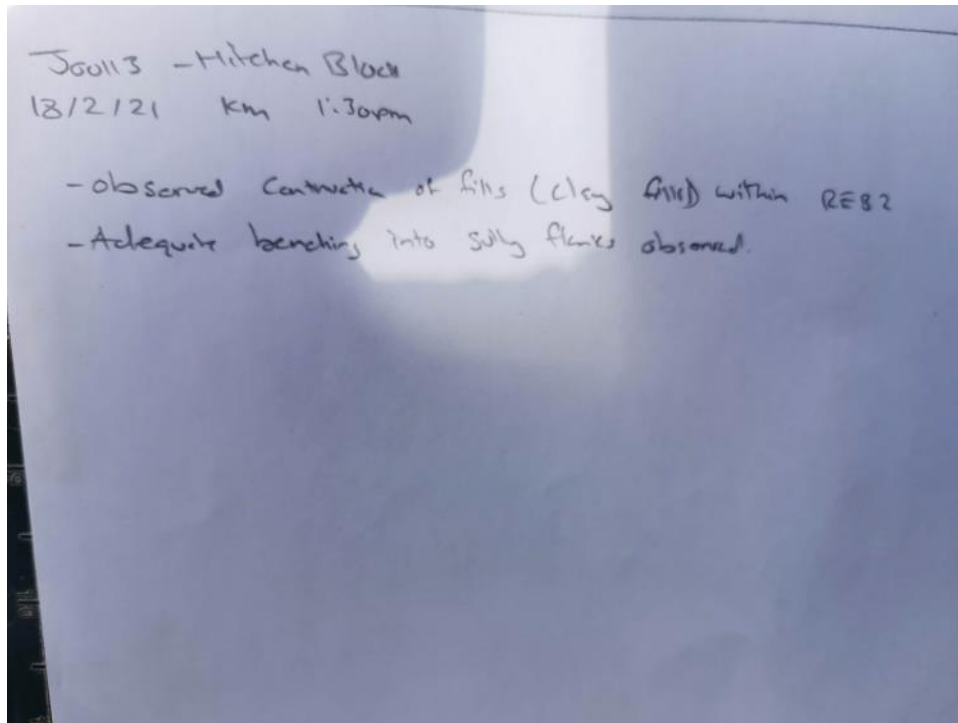 J00113 - Hitchen Block
18/2/21 KM 1:30pm
- observed Contruction of fills (clay fills) within REB2
- Adequite benching into gully flanks observed.